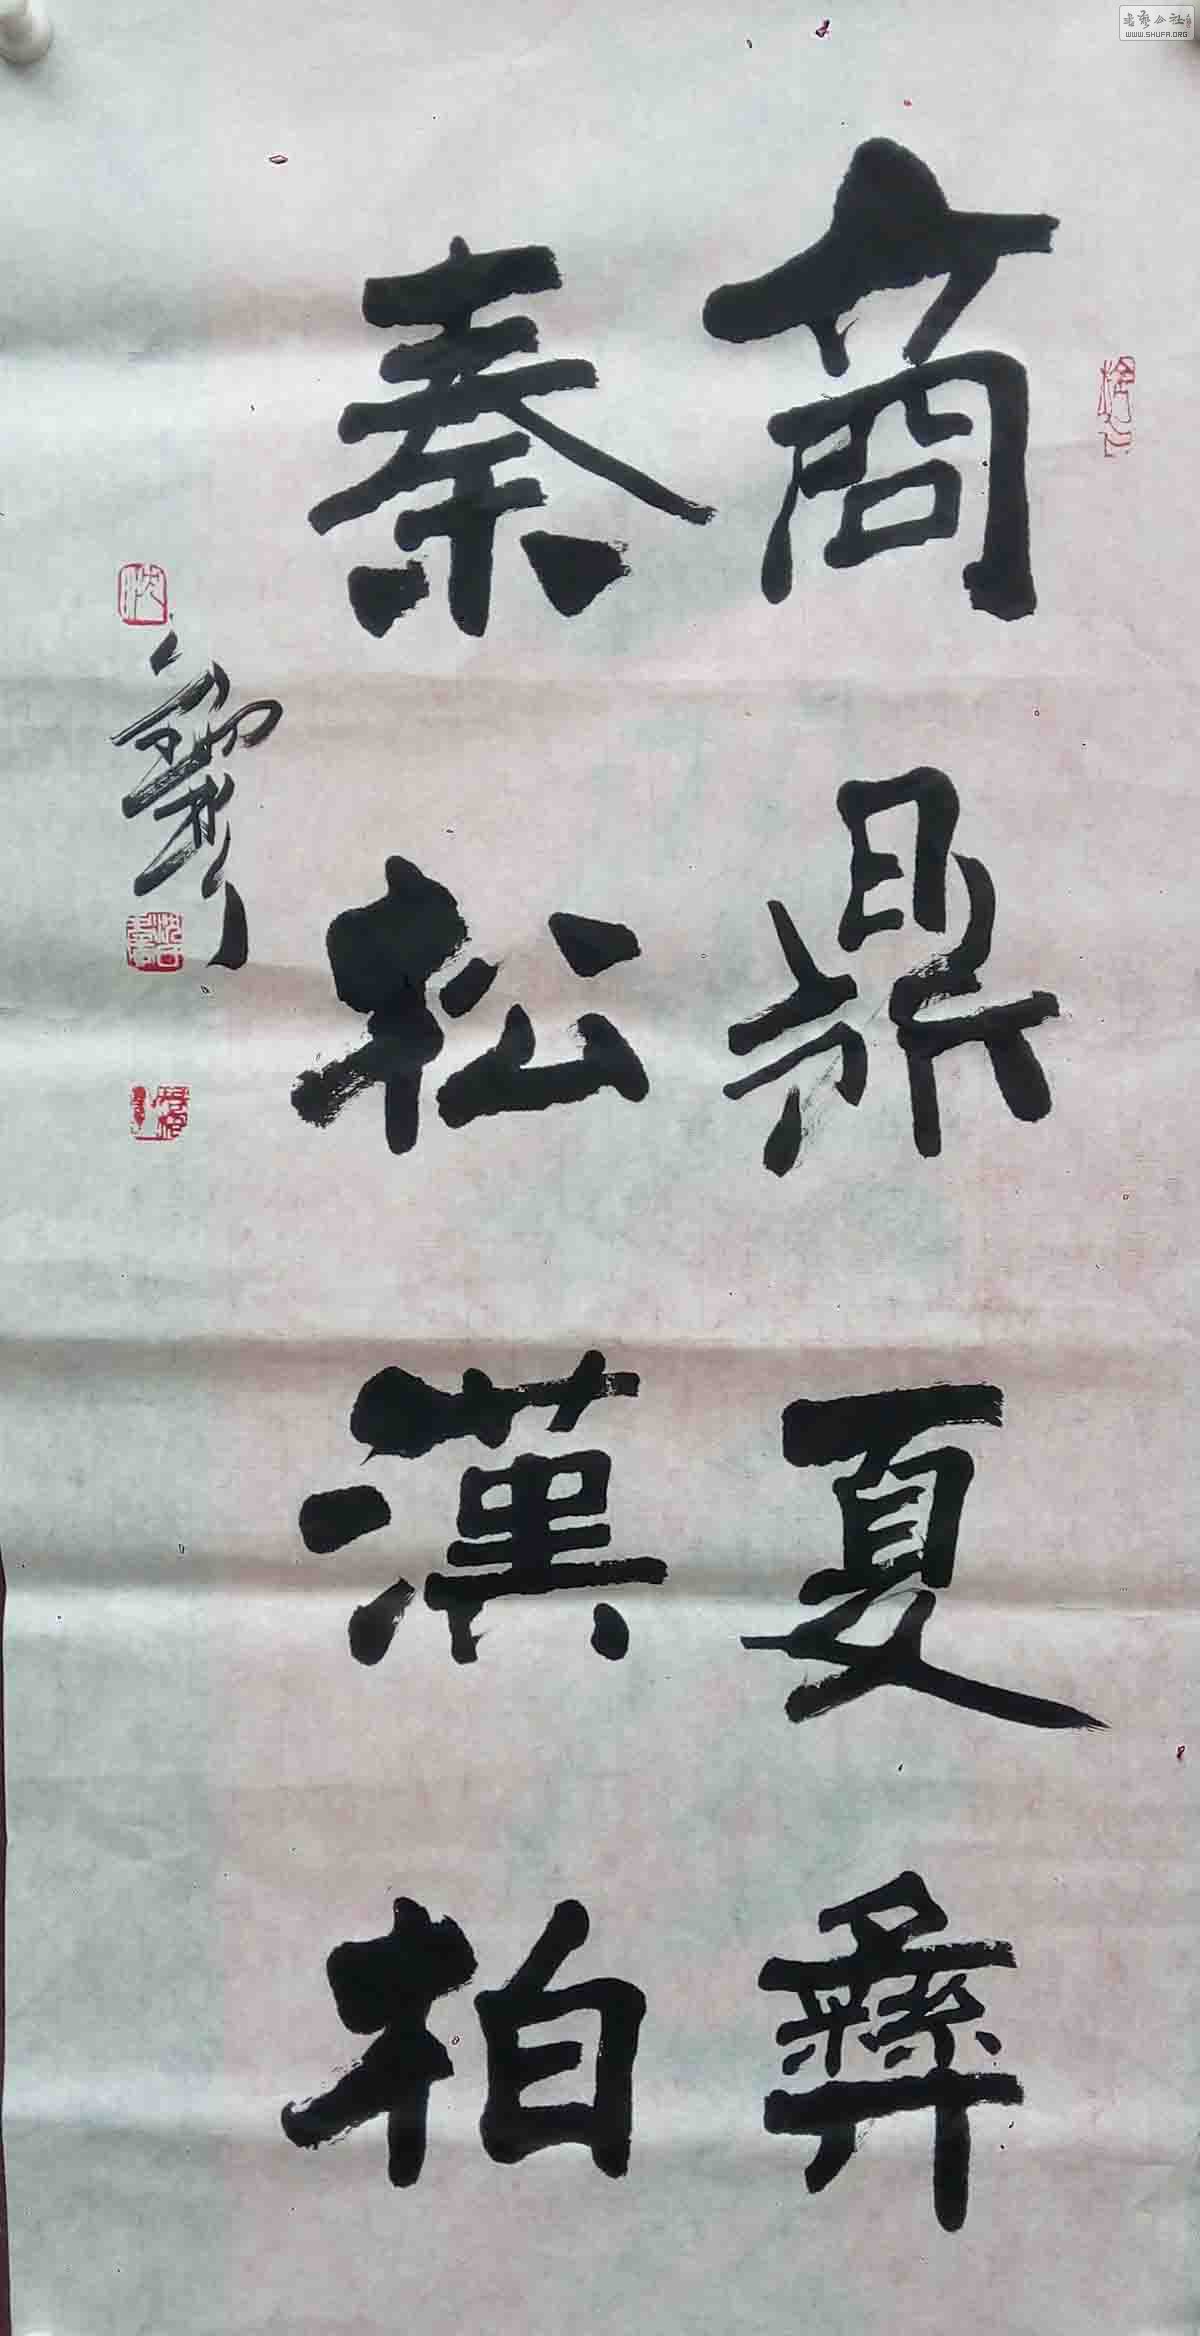 商鼎夏彝
秦松漢柏
WWW.SHUFA.ORG